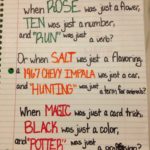 when ROSE was just a flower,
TEN was just a number,
and "RUN" was just
a verb?
Or when SALT was just a flavoring
a 1967 CHEVY IMPALA was just a car,
and "HUNTING" was just
a term for animals?
When MAGIC was just a card trick,
BLACK was just a color,
and "POTTER" was just
a